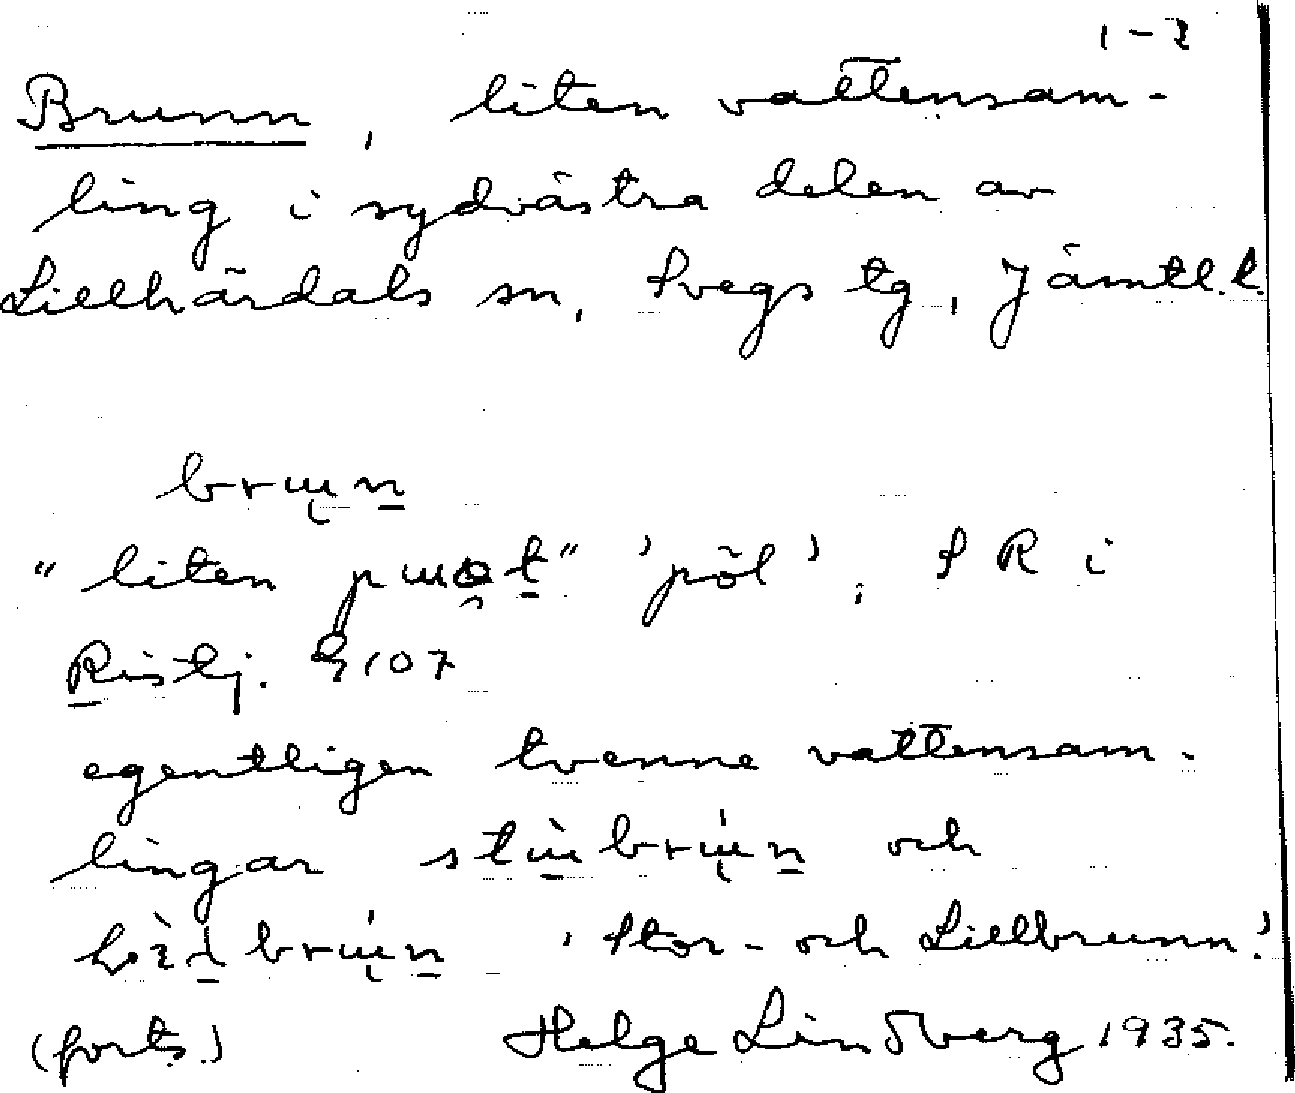 1-2
Brunn, liten vattensam-
ling i sydvästra delen av
Lillhärdals sn, Svegs tg, Jämtl. l.
brɯn
"liten pɯət" 'pöl', SR i
Ristj. 9107
egentligen tvenne vattensam-
lingar stɯ̀brɯ́n och
brɯ́n 'Stor- och Lillbrunn.'
(forts.) Helge Lindberg 1935.